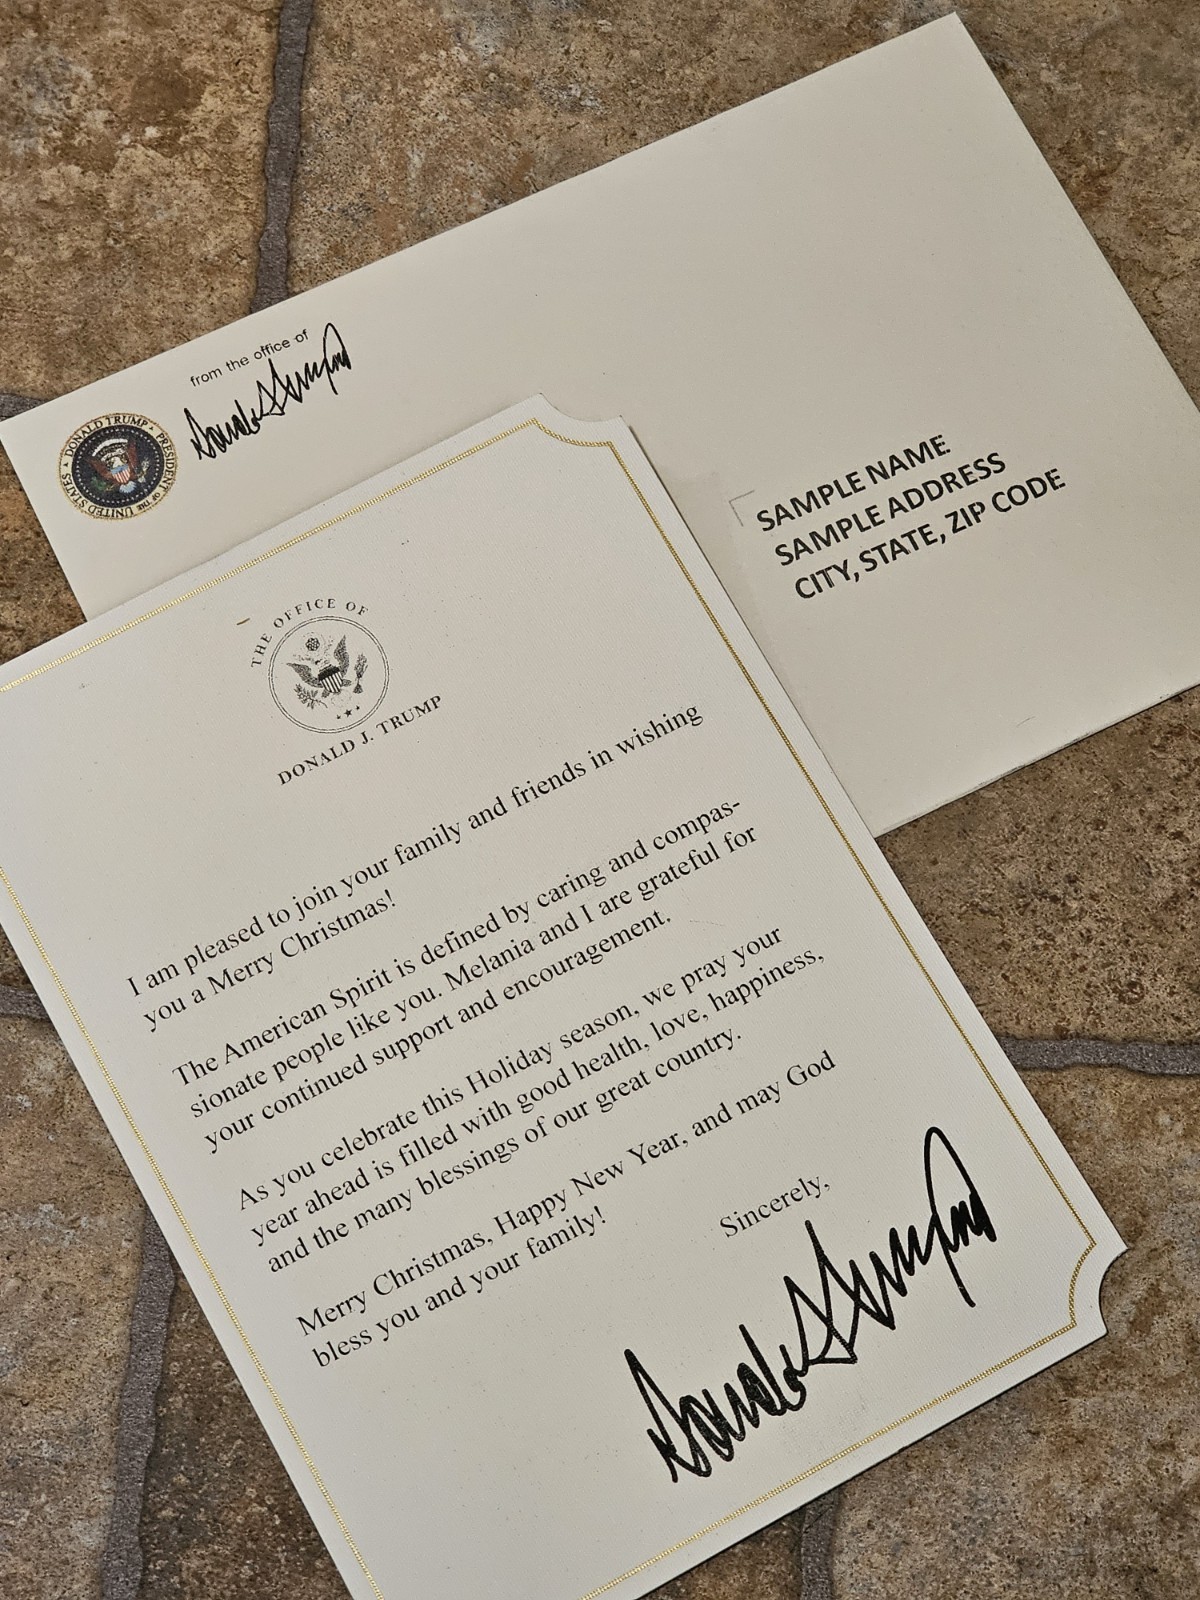 from the office of
Donald Trump
DONALD TRUMP • PRESIDENT OF THE UNITED STATES •
SAMPLE NAME
SAMPLE ADDRESS
CITY, STATE, ZIP CODE
THE OFFICE OF
DONALD J. TRUMP
I am pleased to join your family and friends in wishing
you a Merry Christmas!
The American Spirit is defined by caring and compas-
sionate people like you. Melania and I are grateful for
your continued support and encouragement.
As you celebrate this Holiday season, we pray your
year ahead is filled with good health, love, happiness,
and the many blessings of our great country.
Merry Christmas, Happy New Year, and may God
bless you and your family!
Sincerely,
Donald Trump